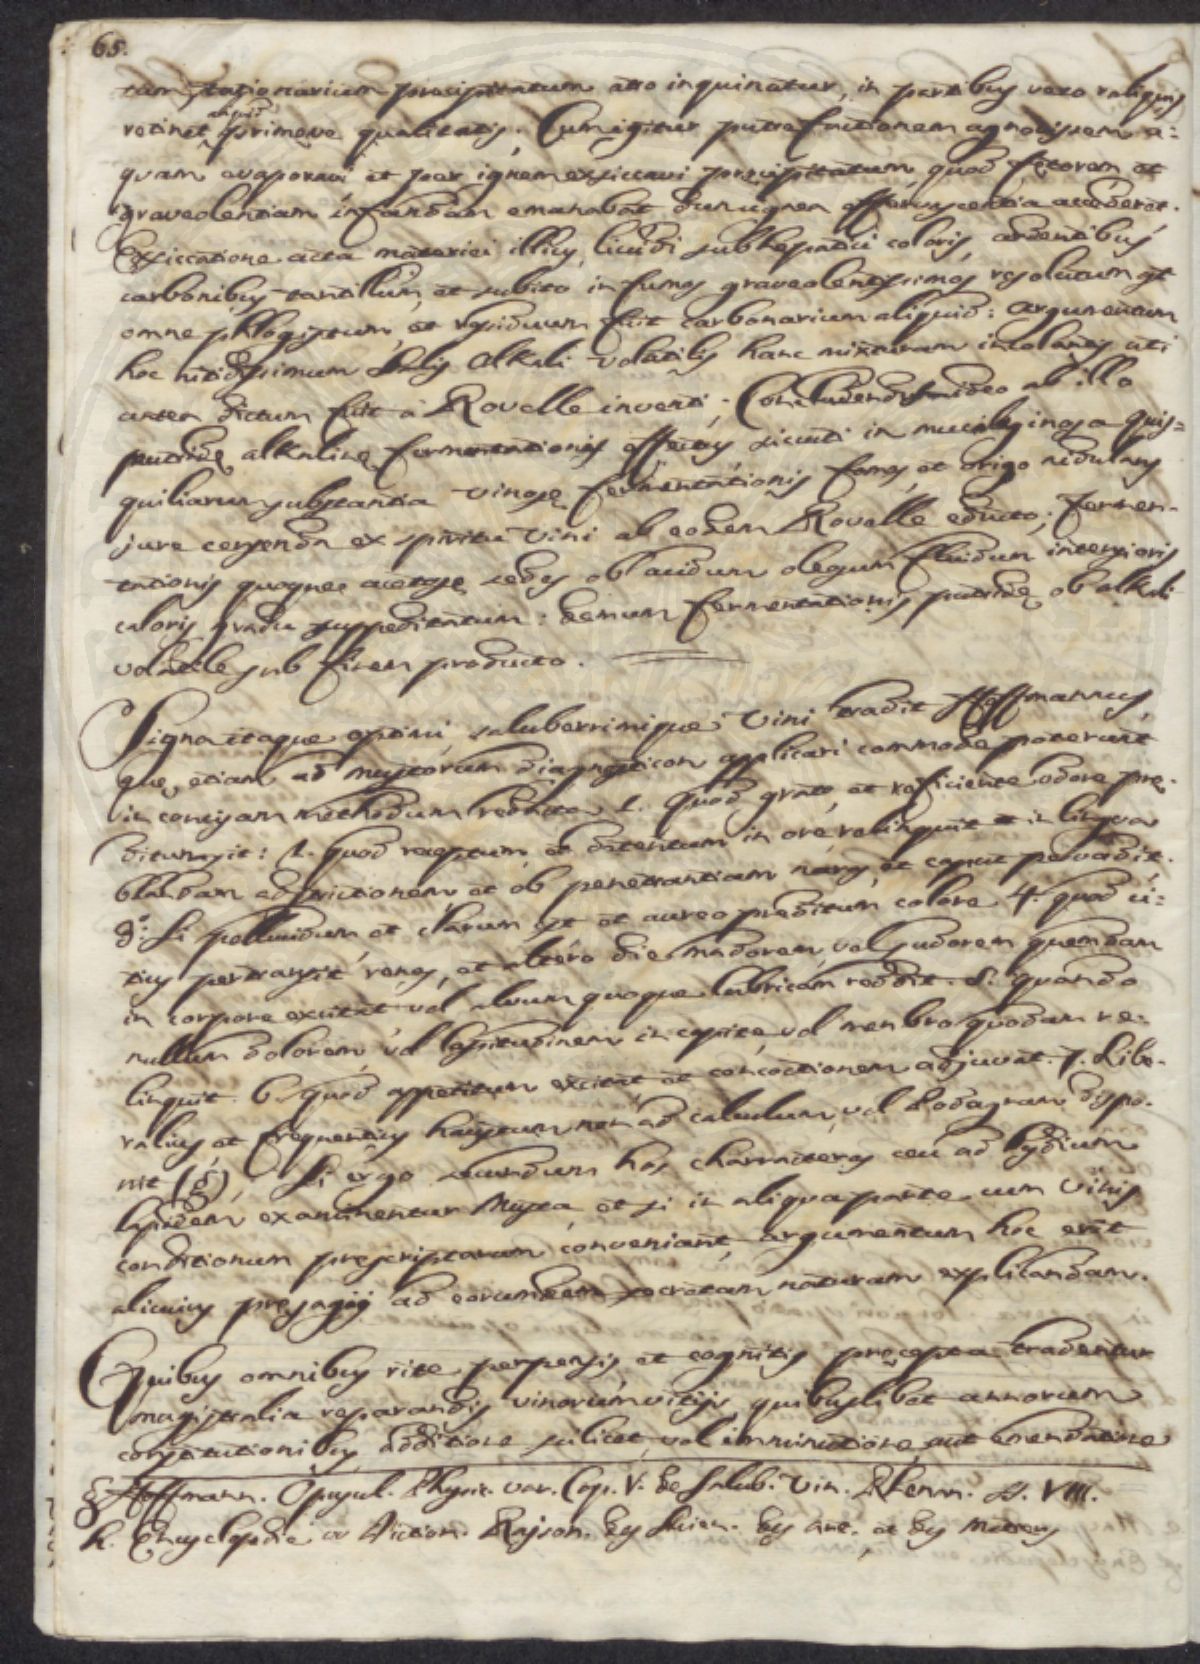 65.
tum, stationarium præcipitatum atro inquinatur, in partibus vero reliquis
aliquid
retinet primeve qualitatis. Cum igitur putrefactionem agnovissem a=
quam evaporavi, et per ignem exsiccavi præcipitatum, quod fetorem et
graveolentiam infandam emanabat dum ignea effervescentia accederet.
Exsiccatione acta materiei illius, licuidi subhepatici coloris, ardentibus
carbonibus tantillum, et subito in fumos graveolentissimos resolutum est
omne phlogistum, et residuum fuit carbonarium aliquid: argumentum
hoc nitidissimum Salis Alkali volatilis hanc mixturam incolantis uti
antea dictum fuit a Rovelle inventi; Concludendum ideo ab illo
putridę alkalinę fermentationis effectus sicuti in mucilaginosa quis=
quiliarum substantia vinosę fermentationis fomes, et origo nidulans
jure censenda ex spiritu vini ab eodem Rovelle educto; fermen-
tationis quoque acetosę sedes ob acidum olegum fluidum intensioris
caloris gradu suppeditatum: demum fermentationis putridę ob alkali
volatile sub finem producto.
Signa itaque optimi, saluberrimique Vini tradit Hoffmannus,
quę etiam ad mustorum diagnosticon applicari commode poterunt
in concisam methodum redacta. 1. Quod grato, et reficiente odore prę-
ditum sit: 2. quod receptum, et detentum in ore relinquit in lingua
blandam adstrictionem, et ob penetrantiam nares, et caput pervadit.
3.° Si pellucidum, et clarum sit et aureo preditum colore. 4. quod ci=
tius pertransit renes, et altero die madorem, vel sudorem quemdam
in corpore excitat vel alvum quoque lubricam reddit. 5. quando
nullum dolorem, vel lassitudinem in capite, vel membro quodam re-
linquit. 6. quod appetitum excitat, et concoctionem adjuvat. 7. Libe-
ralius, et frequentius haustum non ad calculum, vel Podagram dispo-
nit (g). Si ergo secundum hos characteres ceu ad lydium
lapidem examinentur Musta, et si in aliqua parte cum Vinis
conditionum prescriptarum conveniant, argumentum hoc erit
alicuius presagij ad eorumdem secretam naturam explicandam.
Quibus omnibus rite perpensis, et cognitis pręcepta tradentur
magistralia reparandis vinorum vitijs, quibuslibet annorum
constitutionibus, additione scilicet, vel imminutione, aut emendatione
g Hoffmann. Opuscul. Physic. var. Cap. V. de Salub. Vin. Rhenan. §. VIII.
h. Encyclopedie ou Diction. Raison. des Scien. des Art. et des Metiers